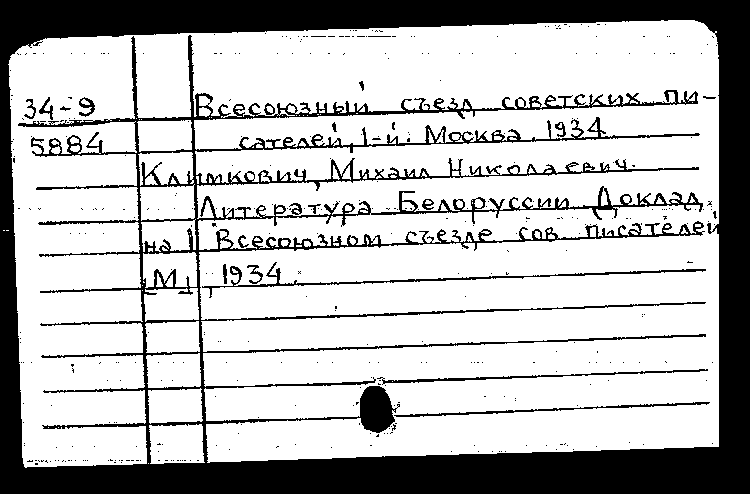 34-9 Всесоюзный съезд советских пи-
5884 сателей, 1-й. Москва. 1934
Климкович, Михаил Николаевич.
Литература Белоруссии. Доклад
на I Всесоюзном съезде сов. писателей
[М.], 1934.